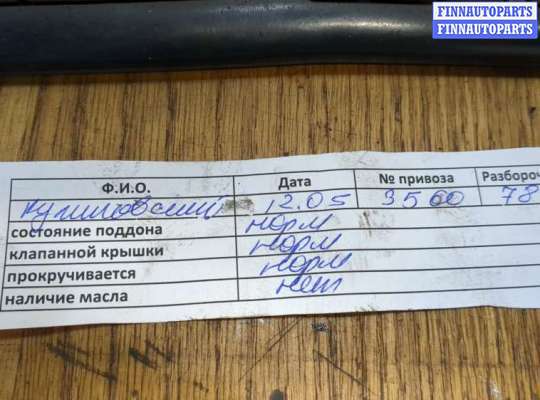 FINNAUTOPARTS
FINNAUTOPARTS
Ф.И.О. Дата № привоза Разбороч
12.05 3560 78
состояние поддона норм
клапанной крышки норм
прокручивается норм
наличие масла нет